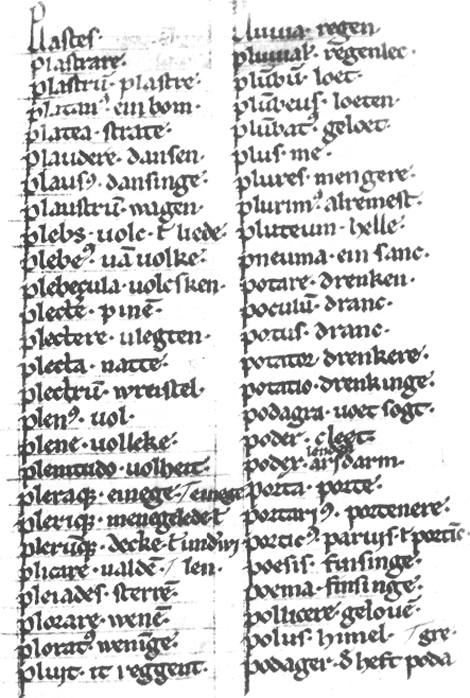 Plastes·
plastrare·
plastrū· plastre·
platanꝰ· ein bom·
platea· strate·
plaudere· dansen·
plausꝰ· dansinge·
plaustrū· wagen·
plebs· uolc· ł liede·
plebeꝰ· uā uolke·
plebecula· uolcsken·
plectē· pinē·
plectere· ulegten·
plecta· natte·
plectrū· wreistel·
plenꝰ· uol·
plene· uolleke·
plenitudo· uolheit·
pleraqꝫ· einege
pleriqꝫ·
plerūqꝫ· decke· ł
plicare· ualdē· len·
pleiades· sterrē·
plorare· wenē·
ploratꝰ wenīge·
pluit· it reggent·
Pluuia· regen
pluuial· regenlec·
plūbū· loet·
plūbeus· loeten·
plūbatꝰ geloet·
plus· me·
plures· mengere·
plurimꝰ· alremest·
pluteum· helle·
pneuma· ein sanc·
potare· drenken·
poculū· dranc·
potus· dranc·
potator drenkere·
potatio· drenkinge·
podagra· uoet sogt·
poder· cleet·
podex· arsdarm·
porta· porte·
portariꝰ· portenere·
porticꝰ· paruis· ł porticː
poesis· finsinge·
poema· finsinge·
pollicere gelouē·
polus· himel· gre·
podager· đ heft poda